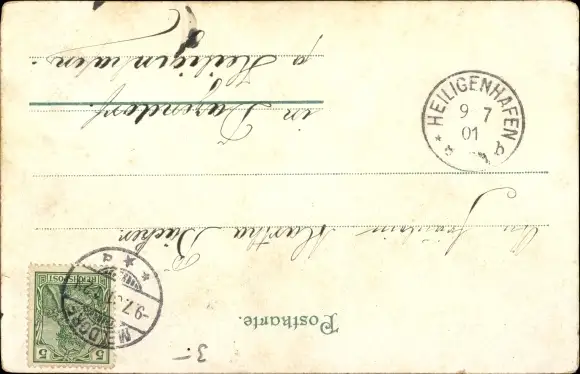 Postkarte.
An Fräulein Martha Bücher.
in Dazendorf.
p. Heiligenhafen.
REICHSPOST
5
-9.7.01
HEILIGENHAFEN
9 7
01
* a
3.-